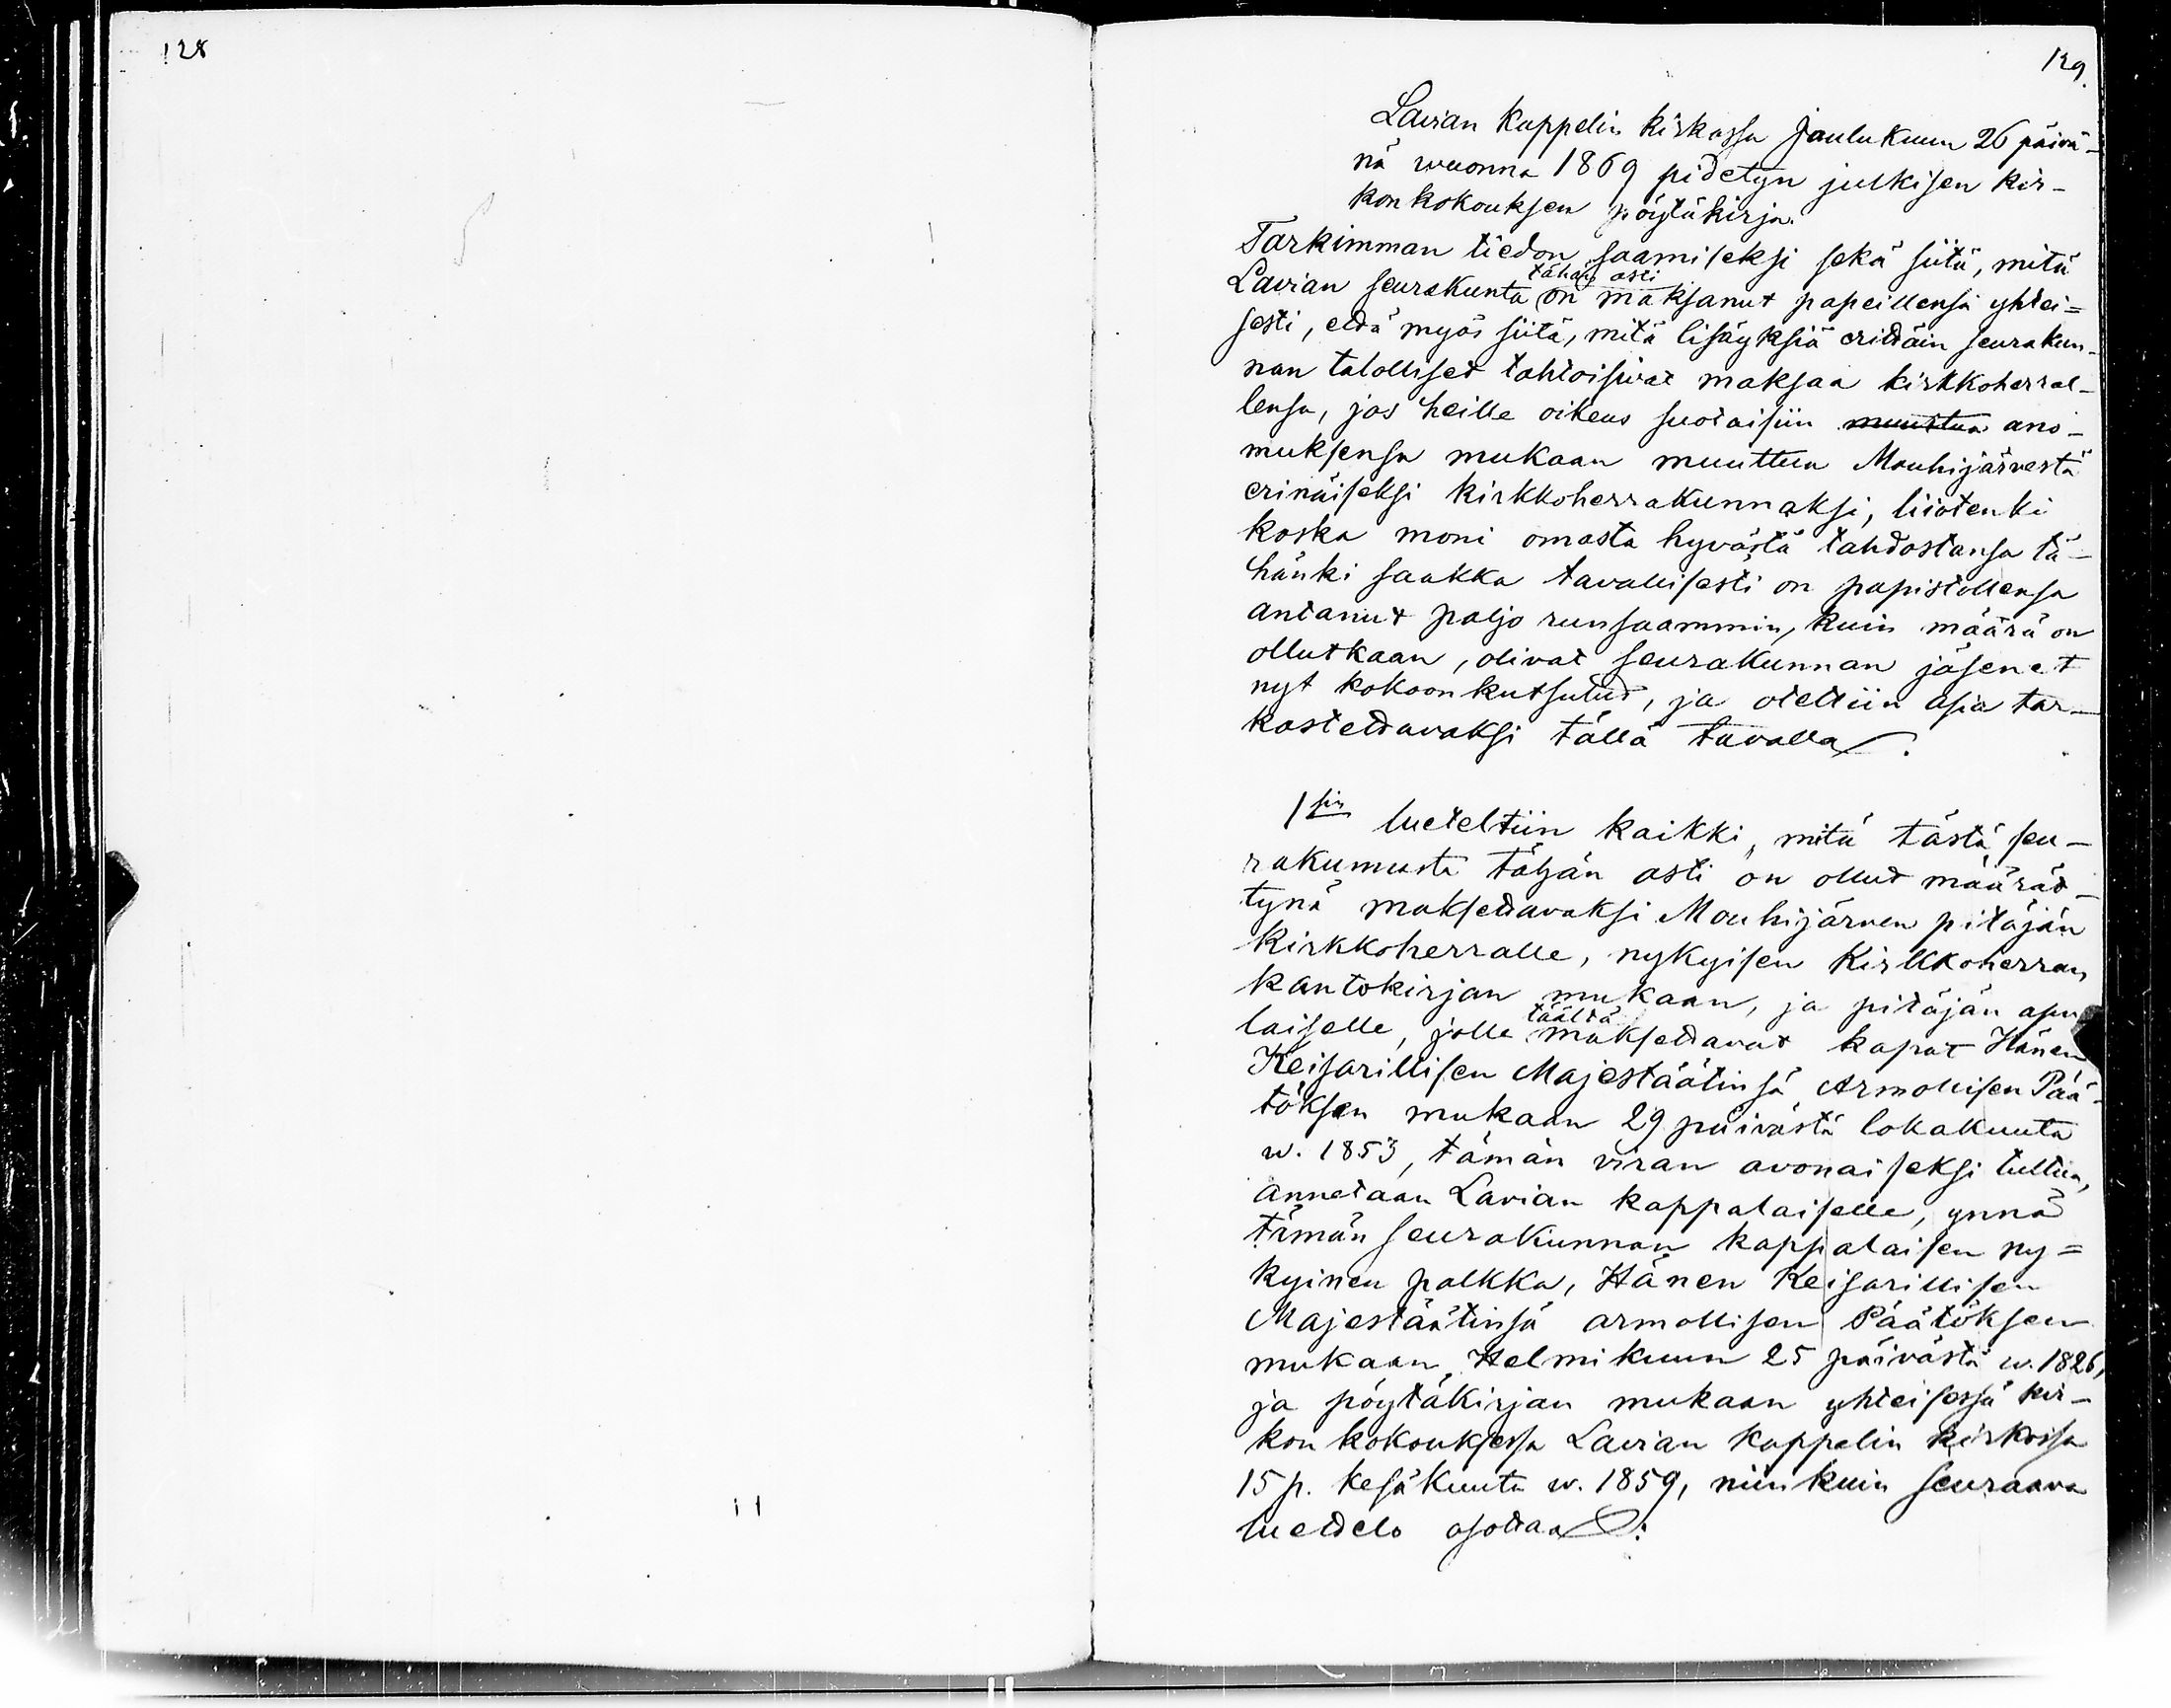 128
129.
Lavian kappelin kirkossa Joulukuun 26 päivä-
nä wuonna 1869 pidetyn julkisen kir-
konkokouksen pöytäkirja.
Tarkimman tiedon saamiseksi sekä siitä, mitä
tähän asti
Lavian seurakunta on maksanut papeillensa yhtei=
sesti, että myös siitä, mitä lisäyksiä erittäin seurakun-
nan talolliset tahtoisivat maksaa kirkkoherral-
lensa, jos heille oikeus suotaisiin muuttua ano-
muksensa mukaan muuttua Mouhijärvestä
erinäiseksi kirkkoherrakunnaksi, liiotenki
koska moni omasta hyvästä tahdostansa tä-
hänki saakka tavallisesti on papistollensa
antanut paljo runsaammin, kuin määrä on
ollutkaan, olivat seurakunnan jäsenet
nyt kokoonkutsutut, ja otettiin asia tar-
kastettavaksi tällä tavalla:
1sin lueteltiin kaikki, mitä tästä seu-
rakunnasta tähän asti on ollut määrät-
tynä maksettavaksi Mouhijärven pitäjän
Kirkkoherralle, nykyisen Kirkkoherran
kantokirjan mukaan, ja pitäjän apu
täältä
laiselle, jolle maksettavat kapat Hänen
Keisarillisen Majestäätinsä Armollisen Pää-
töksen mukaan 29 päivästä lokakuuta
w. 1853, tämän viran avonaiseksi tultua,
annetaan Lavian kappalaiselle, ynnä
tämän seurakunnan kappalaisen ny=
kyinen palkka, Hänen Keisarillisen
Majestäätinsä armollisen Päätöksen
mukaan Helmikuun 25 päivästä w. 1826,
ja pöytäkirjan mukaan yhteisessä kir-
kon kokouksessa Lavian kappelin kirkossa
15 p. kesäkuuta w. 1859, niinkuin seuraava
luettelo osottaa: